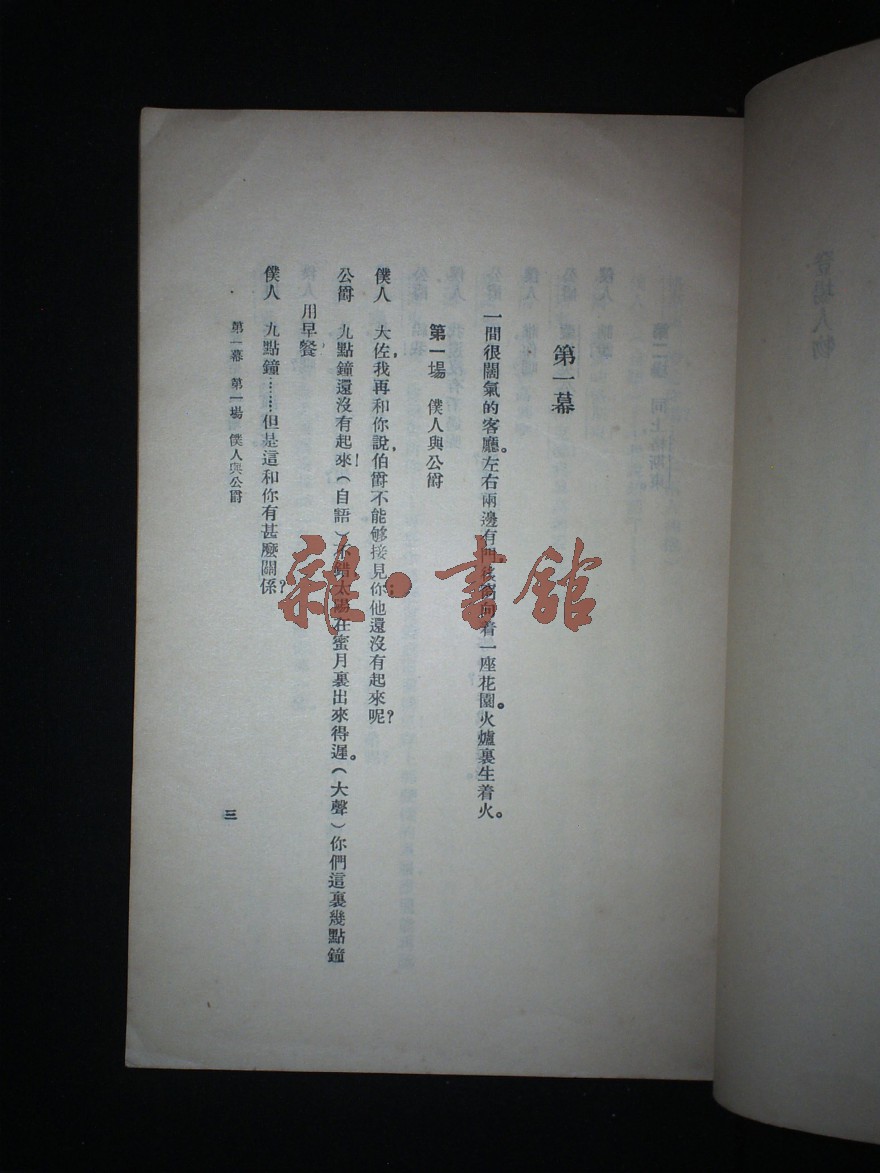 第一幕
一間很闊氣的客廳。左右兩邊有門，後窗向着一座花園。火爐裏生着火。
第一場　僕人與公爵
僕人　大佐，我再和你說，伯爵不能够接見你；他還沒有起來呢？
公爵　九點鐘還沒有起來！（自語）不錯太陽在蜜月裏出來得遲。（大聲）你們這裏幾點鐘
用早餐？
僕人　九點鐘……但是這和你有甚麼關係？
第一幕　第一場　僕人與公爵
三
登場人物
雜·書館